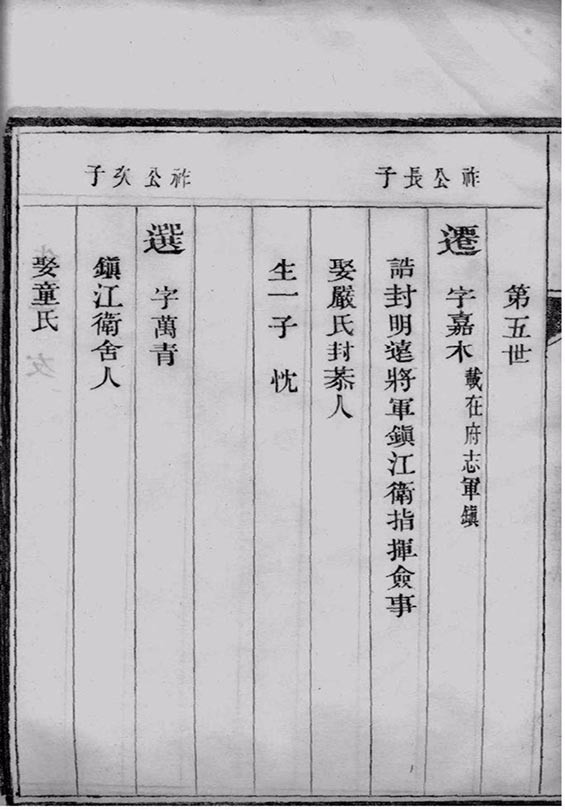 第五世
祚公長子
遷 字嘉木 載在府志軍鎭
誥封明遠將軍鎭江衛指揮僉事
娶嚴氏封恭人
生一子 忱
祚公次子
選 字萬青
鎭江衛舍人
娶童氏